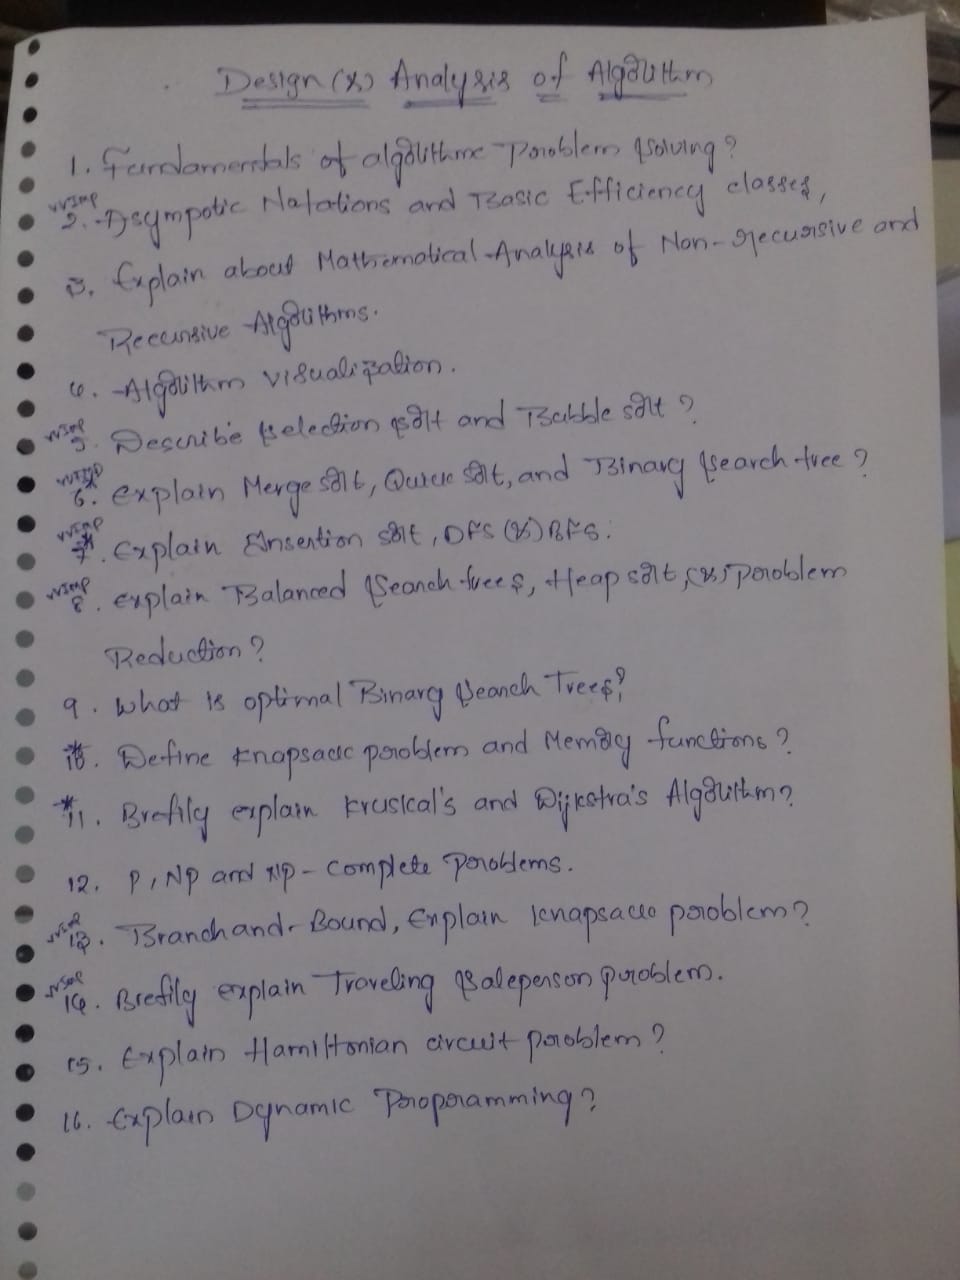 Design (&) Analysis of Algorithm
1. Fundamentals of algorithmc Problem Solving?
VVIMP
2. Asympotic Notations and Basic Efficiency classes,
3. Explain about Mathematical Analysis of Non-recursive and
Recursive Algorithms.
4. Algorithm visualization.
VVIMP
5. Describe selection sort and Bubble sort?
VVIMP
6. explain Merge sort, Quick sort, and Binary Search tree?
VVIMP
*7. Explain Insertion sort, DFS (&) BFS.
VVIMP
8. explain Balanced Search trees, Heap sort, (&) problem
Reduction?
9. What is optimal Binary Search Trees?
*10. Define knapsack problem and Memory functions?
*11. Brefily explain kruskal's and Dijkstra's Algorithm?
12. P, NP and NP-complete problems.
VVIMP
13. Branch and-Bound, Explain knapsack problem?
VVIMP
14. Brefily explain Traveling Saleperson problem.
15. Explain Hamiltonian circuit problem?
16. Explain Dynamic Proporamming?